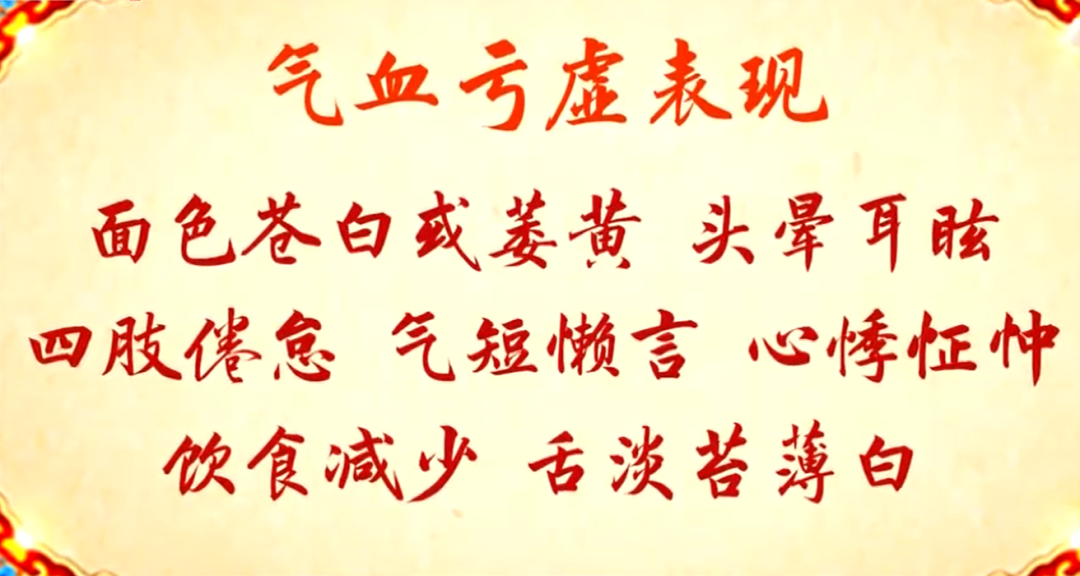 气血亏虚表现
面色苍白或萎黄 头晕耳眩
四肢倦怠 气短懒言 心悸怔忡
饮食减少 舌淡苔薄白